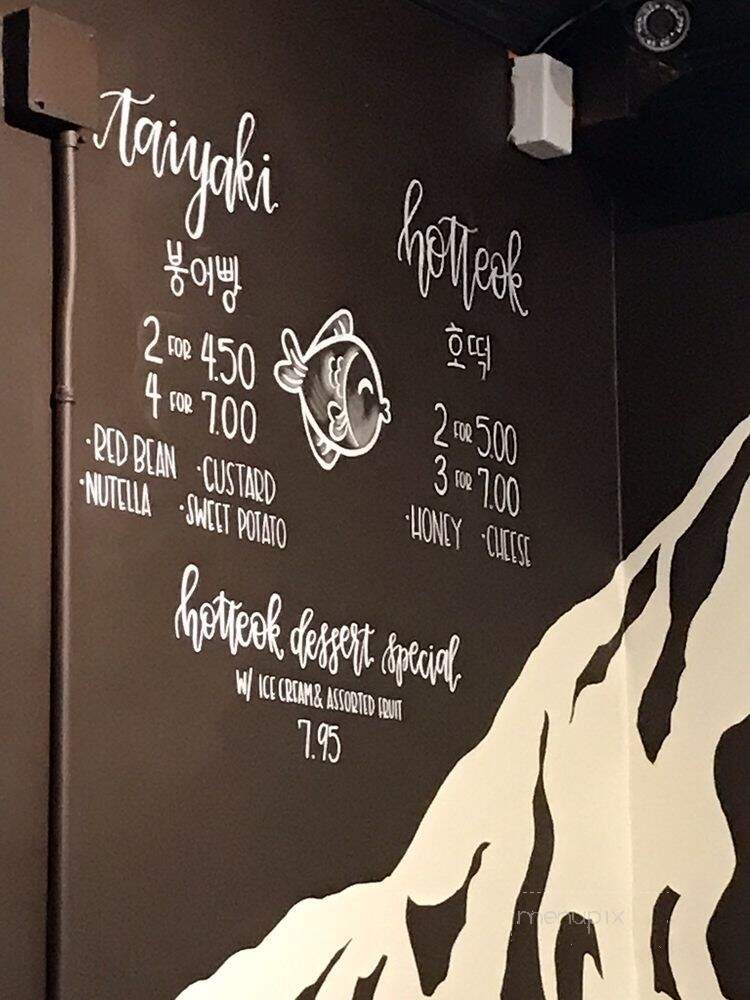 taiyaki
붕어빵
2 FOR 4.50
4 FOR 7.00
·RED BEAN ·CUSTARD
·NUTELLA ·SWEET POTATO
hotteok
호떡
2 FOR 5.00
3 FOR 7.00
·HONEY ·CHEESE
hotteok dessert special
W/ ICE CREAM & ASSORTED FRUIT
7.95
menupix